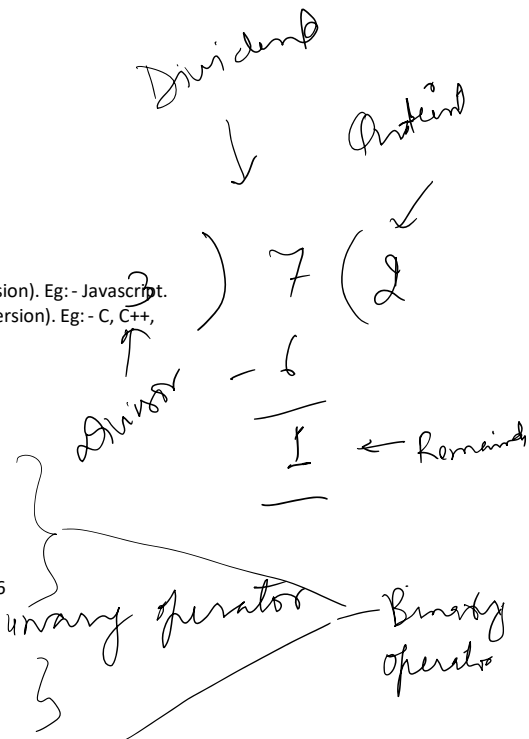 Dividend
Quotient
sion). Eg: - Javascript.
ersion). Eg: - C, C++,
3 ) 7 ( 2
Divisor
- 6
1 ← Remaind
6
unary operator
Binary
operato